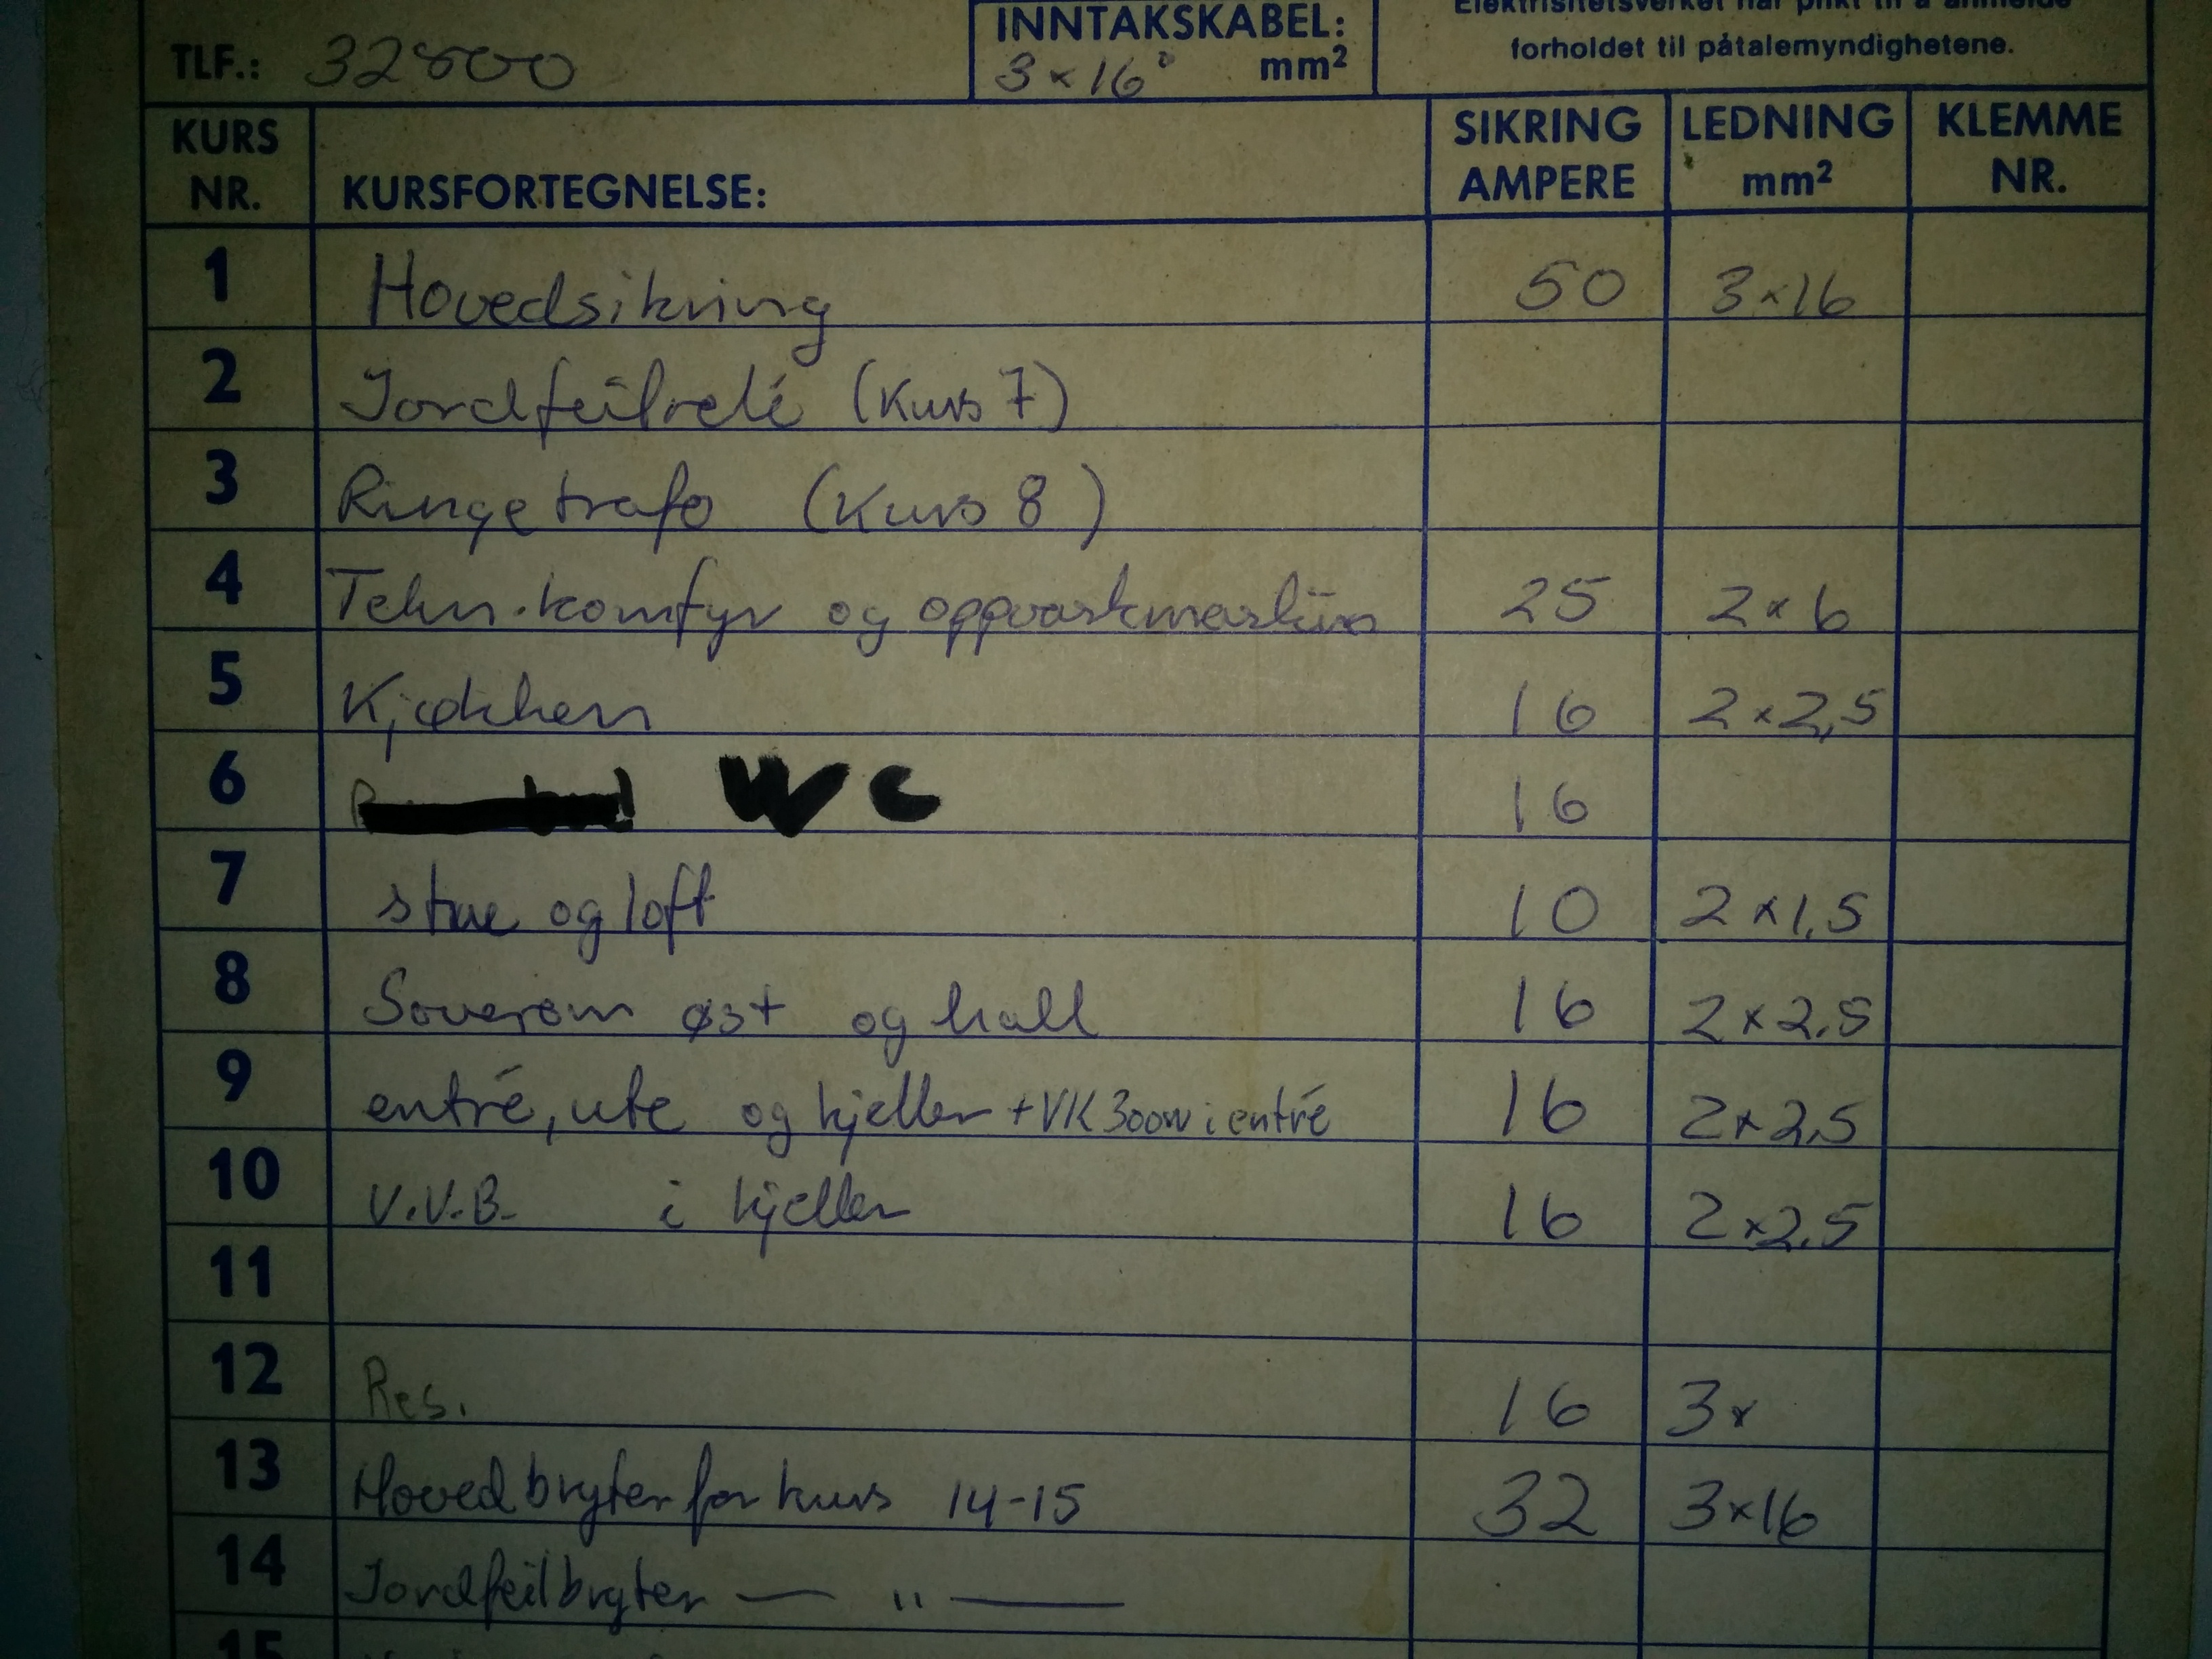 INNTAKSKABEL:
forholdet til påtalemyndighetene.
TLF.: 32800
3×16 mm²
KURS NR. KURSFORTEGNELSE: SIKRING AMPERE LEDNING mm² KLEMME NR.
1 Hovedsikring 50 3×16
2 Jordfeilrelé (Kurs 7)
3 Ringetrafo (Kurs 8)
4 Tekn. komfyr og oppvaskmaskin 25 2×6
5 Kjøkken 16 2×2,5
6 WC 16
7 stue og loft 10 2×1,5
8 Soverom øst og hall 16 2×2.5
9 entré, ute og kjeller +VK 300W i entré 16 2×2,5
10 V.V.B. i kjeller 16 2×2.5
11
12 Res. 16 3×
13 Hovedbryter for kurs 14-15 32 3×16
14 Jordfeilbryter — " —
15